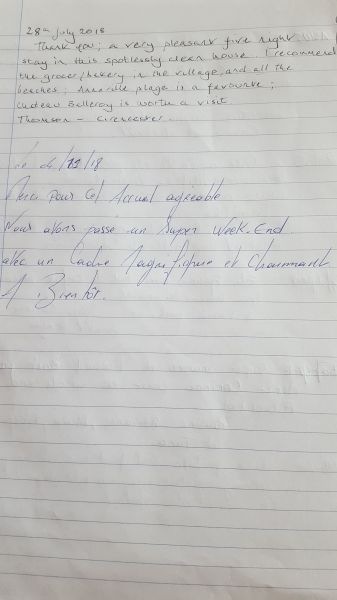 28th July 2018
Thank you; a very pleasant five night
stay in this spotlessly clean house. I recommend
the grocer/bakery in the village, and all the
beaches; Anneville plage is a favourite;
Cadeau Balleroy is worth a visit.
Thomson - Cirencester.
Le 4/11/18
Merci pour cet Accueil agréable
Nous avons passé un Super Week-End
avec un Cadre Magnifique et Charmant.
A Bientôt.